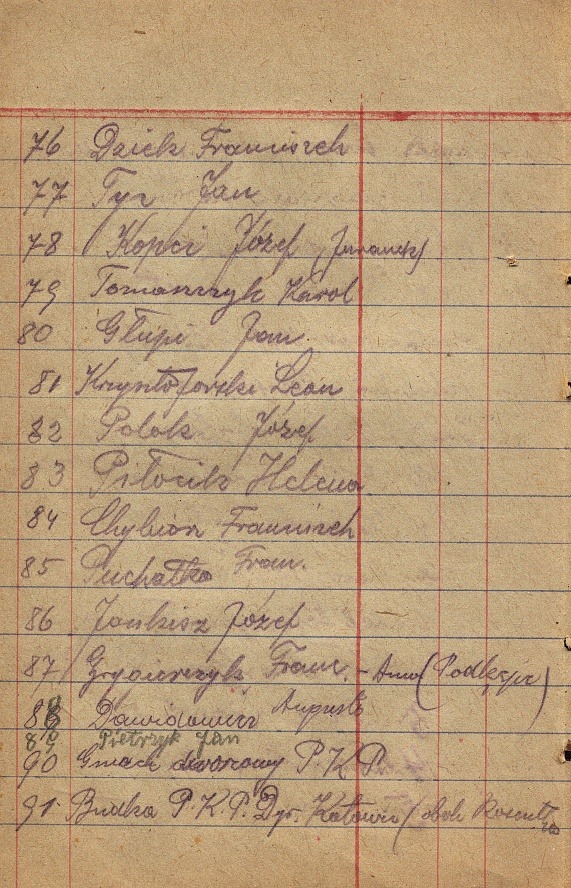 76 Dzick Franciszek
77 Tyr Jan
78 Kopci Józef
79 Tomaszczyk Karol
80 Głupi Jan.
81 Krzysztoforski Leon
82 Polok Józef
83 Piłocik Helena
84 Chybiorz Franciszek
85 Puchałka Fran.
86 Jankisz Józef
87 Franc. - Anna (Podlesze)
88 Dawidowicz Augusta
89 Pietrzyk Jan
90 Gmach dworcowy P.K.P.
91 Budka P.K.P. Dyr. Katowic (obok